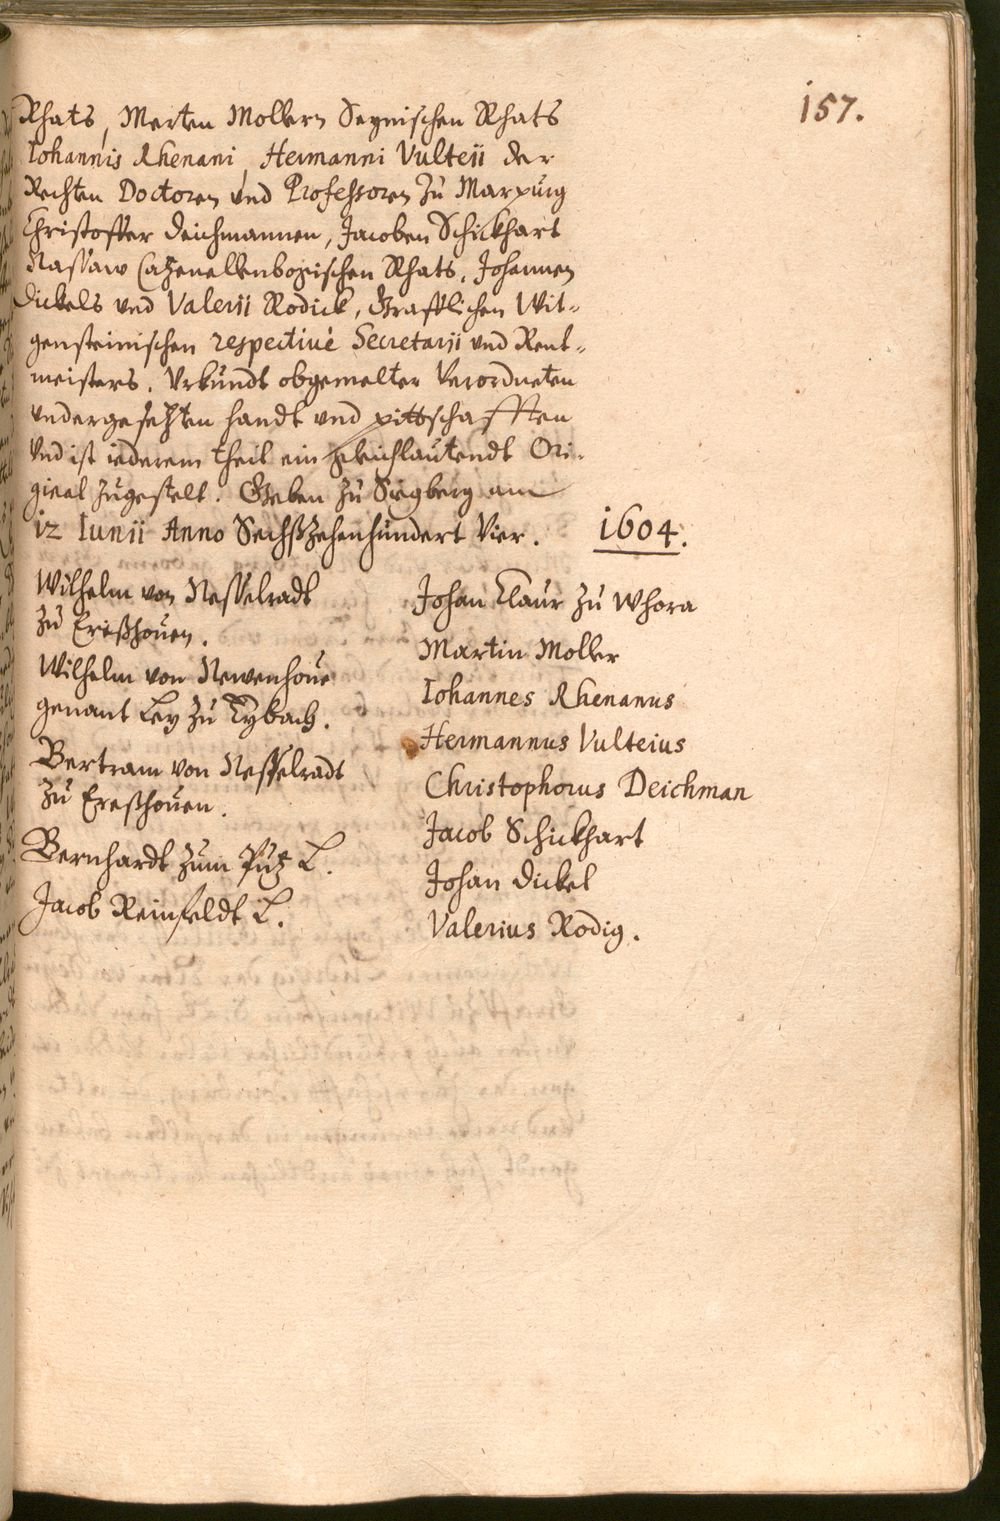 157.
Rhats, Merten Mollers Seynischen Rhats
Iohannis Rhenani, Hermanni Vulteii der
Rechten Doctoren und Professoren zu Marpurg
Christoffer Deichmannen, Jacoben Schickhart
Nassaw Catzenellenbogischen Rhats, Johannen
Dickels und Valerii Rodick, Grafflichen Wit-
gensteinischen respective Secretarii und Rent-
meisters. Urkundt obgemelter Verordneten
undergesetzten handt und pittschafften
Und ist iederem theil ein gleichlautendt Ori-
ginal zugestelt. Geben zu Siegberg am
12 Iunii Anno Sechßzehenhundert Vier. 1604.
Wilhelm von Nesselradt
zu Ereßhouen.
Wilhelm von Newenhoue
genant Ley zu Eybach.
Bertram von Nesselradt
zu Ereßhouen.
Bernhardt zum Pütz L.
Jacob Reinfeldt L.
Johan Claur zu Whora
Martin Moller
Iohannes Rhenanus
Hermannus Vulteius
Christophorus Deichman
Jacob Schickhart
Johan Dickel
Valerius Rodig.